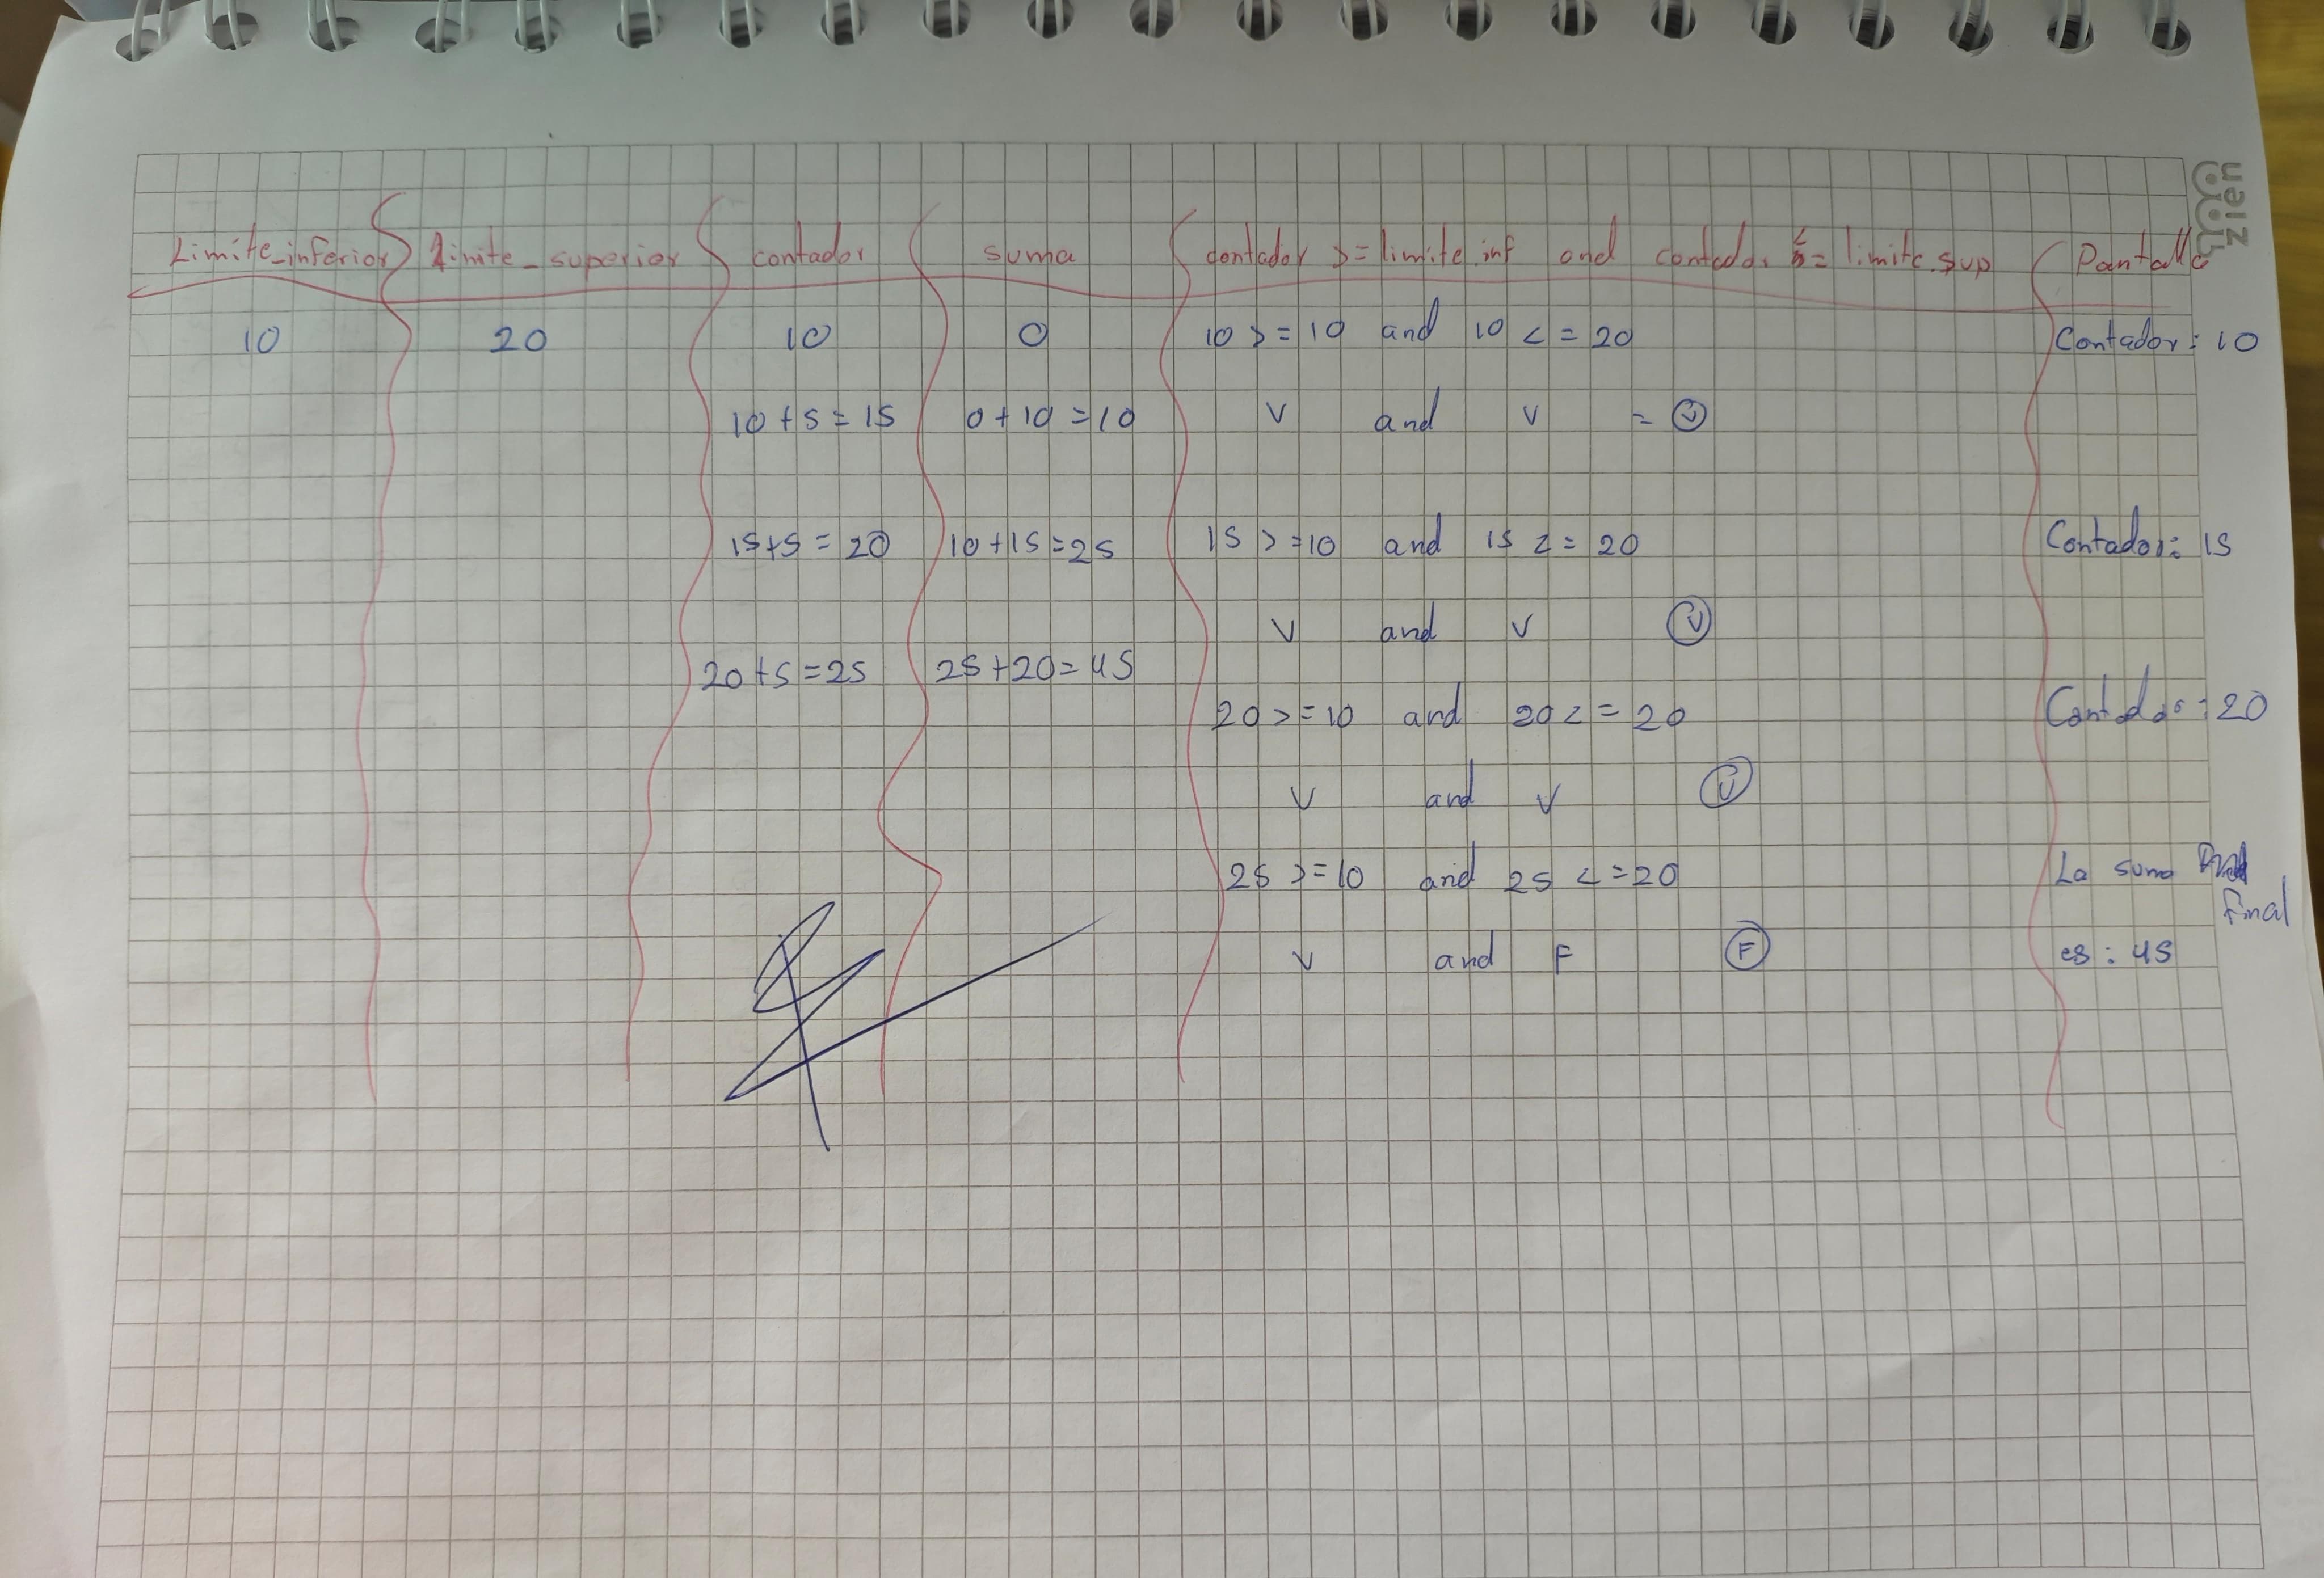 zien
Limite_inferior limite_superior contador suma contador >= limite.inf and contador <= limite.sup Pantalla
10 20 10 0 10 >= 10 and 10 <= 20 Contador: 10
10+5=15 0+10=10 V and V = V
15+5=20 10+15=25 15 >=10 and 15 <= 20 Contador: 15
V and V V
20+5=25 25+20=45
20 >=10 and 20 <= 20 Contador: 20
V and V V
25 >=10 and 25 <=20 La suma
final
V and F F es: 45